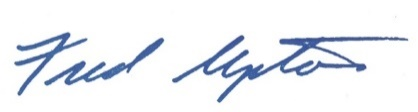 Fred Upton